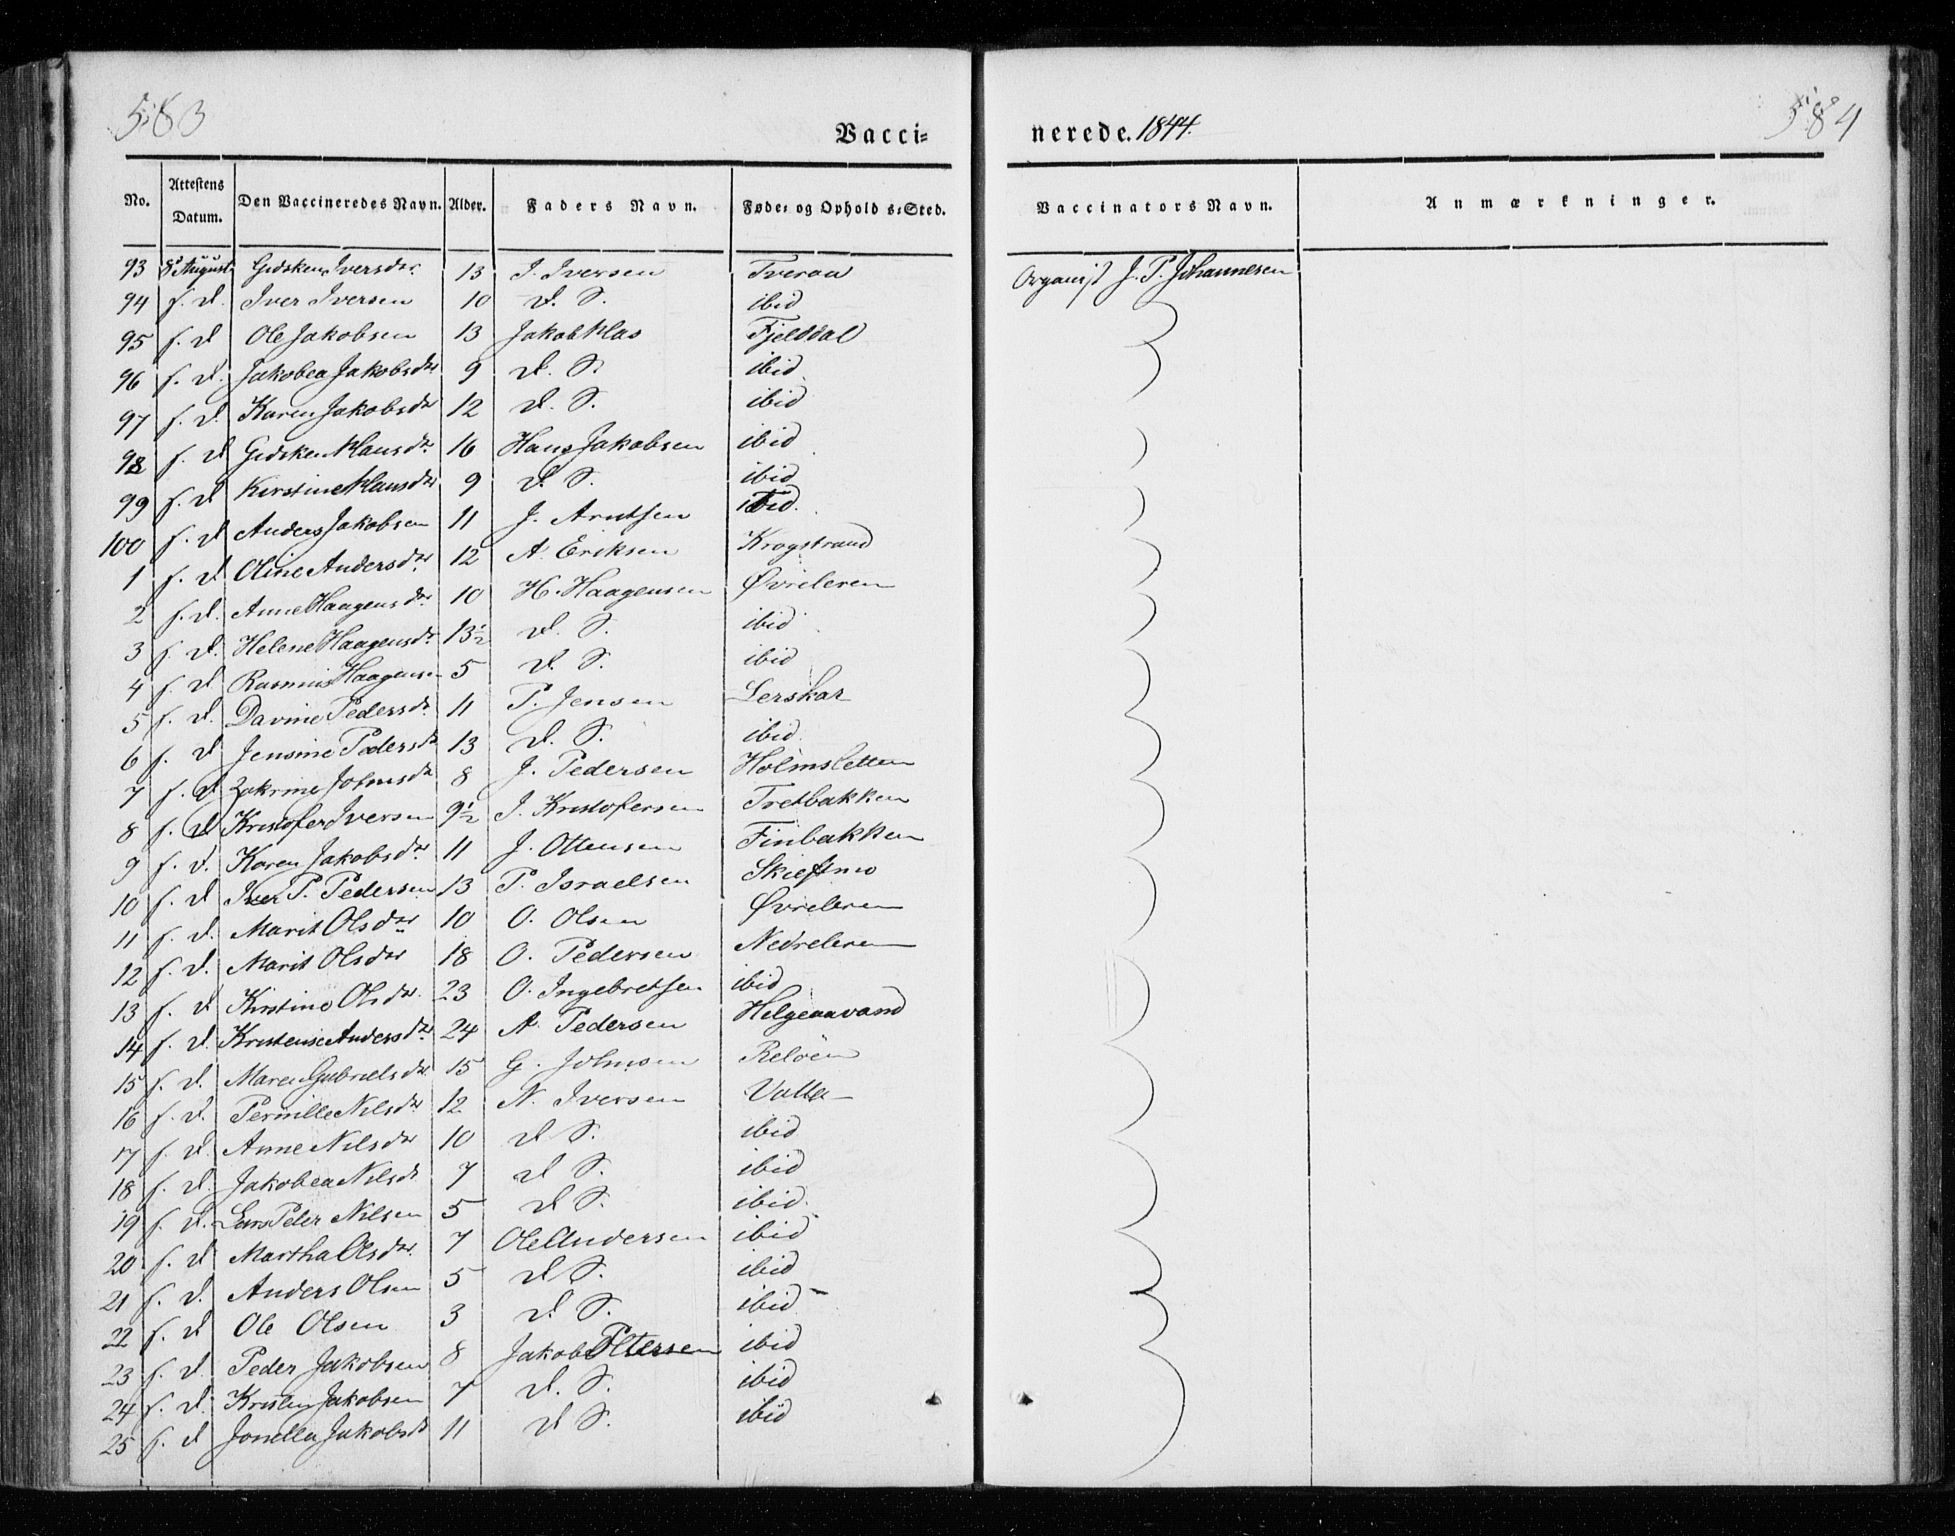 583
584
Vacci-
nerede. 1844.
No. Attestens Datum. Den Vaccineredes Navn. Alder. Faders Navn. Føde- og Ophold s-Sted. Vaccinators Navn. Anmærkninger.
93 8de August Gidsken Iversdr 13 I. Iversen Tveraa Organist J. P. Johannesen
94 s. d. Iver Iversen 10 d. S. ibid
95 s. d Ole Jakobsen 13 Jakob Klas Fjelddal
96 s. d. Jakobea Jakobsdr 9 d. S. ibid
97 s. d. Karen Jakobsdr 12 d. S. ibid
98 s. d Gidsken Hansdr 16 Hans Jakobsen ibid
99 s. d Kirstine Hansdr 9 d. S. ibid
100 s. d Anders Jakobsen 11 J. Arntsen ibid.
1 s. d Oline Andersdr 12 A. Eriksen Krogstrand
2 s. d. Anne Haagensdr 10 H. Haagensen Øvreleren
3 s. d. Helene Haagensdr 13½ d. S. ibid
4 s. d Rasmus Haagensen 5 d. S. ibid
5 s. d. Davine Pedersdr. 11 P. Jensen Lerskar
6 s. d Jensine Pedersdr 13 d. S. ibid.
7 s. d Johnsdr 8 J. Pedersen Holmsletten
8 s. d Kristofer Iversen 9½ I. Kristofersen Tretbakken
9 s. d. Karen Jakobsdr. 11 J. Ottensen Finbakken
10 s. d Iver P. Pedersen 13 P. Israelsen Skieftmo
11 s. d. Marit Olsdr 10 O. Olsen Øvreleren
12 s. d. Marit Olsdr 18 O. Pedersen Nedreleren
13 s. d Kirstine Olsdr 23 O. Ingebretsen ibid
14 s. d. Kristense Andersdr. 24 A. Pedersen Helgeaavand
15 s. d. Maren Gabrielsdr 15 G. Johnsen Reløen
16 s. d. Pernille Nilsdr 12 N. Iversen Valla
17 s. d. Anne Nilsdr 10 d S. ibid
18 s. d. Jakobea Nilsdr 7 d S. ibid
19 s. d. Lars Peter Nilsen 5 d S. ibid.
20 s. d Martha Olsdr. 7 Ole Andersen ibid
21 s. d. Anders Olsen 5 d S. ibid
22 s. d Ole Olsen 3 d. S. ibid
23 s. d. Peder Jakobsen 8 Jakob Pttersen ibid
24 s. d. Kristen Jakobsen 7 d. S. ibid
25 s. d Jonella Jakobsdr 11 d S. ibid